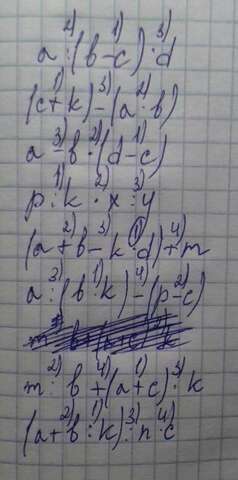 a²⁾:(b¹⁾-c)³⁾·d
(c¹⁾+k)³⁾-(a²⁾:b)
a³⁾-b²⁾·(d¹⁾-c)
p¹⁾:k²⁾·x³⁾:y
(a²⁾+b³⁾-k¹⁾·d)⁴⁾+m
a³⁾:(b¹⁾·k)⁴⁾-(p²⁾-c)
m²⁾:b⁴⁾+(a¹⁾+c)³⁾·k
(a²⁾+b¹⁾:k)³⁾:n⁴⁾·c